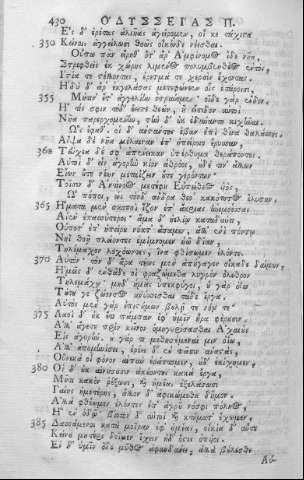 430 ΟΔΥΣΣΕΙΑΣ Π.
Ἐς δ' ἐρέτας ἁλιῆας ἀγείρομεν, οἵ κε τάχιστα
350 Κείνοις ἀγγείλωσι θοῶς οἶκόνδε νέεσθαι.
Οὔπω πᾶν εἴρηθ' ὅτ' ἄρ' Ἀμφίνομος ἴδε νῆα,
Στρεφθεὶς ἐκ χώρης λιμένος πολυβενθέος ἐντὸς,
Ἱστία τε στέλλοντας, ἐρετμά τε χερσὶν ἔχοντας.
Ἡδὺ δ' ἄρ' ἐκγελάσας μετεφώνεεν οἷς ἑτάροισι,
355 Μήτιν' ἔτ' ἀγγελίην ὀτρύνωμεν· οἵδε γὰρ ἔνδον.
Ἤ τίς σφιν τόδ' ἔειπε θεῶν, ἢ εἴσιδον αὐτοὶ
Νῆα παρερχομένην, τὴν δ' οὐκ ἐδύναντο κιχῆναι.
Ὣς ἔφαθ'· οἱ δ' ἀνστάντες ἔβαν ἐπὶ θῖνα θαλάσσης.
Αἶψα δὲ νῆα μέλαιναν ἐπ' ἠπείροιο ἔρυσσαν·
360 Τεύχεα δέ σφ' ἀπένεικαν ὑπέρθυμοι θεράποντες.
Αὐτοὶ δ' εἰς ἀγορὴν κίον ἀθρόοι, οὐδέ τιν' ἄλλον
Εἴων οὔτε νέων μεταΐζειν οὔτε γερόντων·
Τοῖσιν δ' Ἀντίνοος μετέφη Εὐπείθεος υἱός·
Ὦ πόποι, ὡς τόνδ' ἄνδρα θεοὶ κακότητος ἔλυσαν.
365 Ἤματα μὲν σκοποὶ ἷζον ἐπ' ἄκριας ἠνεμοέσσας
Αἰὲν ἐπασσύτεροι· ἅμα δ' ἠελίῳ καταδύντι
Οὔποτ' ἐπ' ἠπείρου νύκτ' ἄσαμεν, ἀλλ' ἐνὶ πόντῳ
Νηῒ θοῇ πλείοντες ἐμίμνομεν ἠῶ δῖαν,
Τηλέμαχον λοχόωντες, ἵνα φθίσωμεν ἑλόντες
370 Αὐτόν· τὸν δ' ἄρα τέως μὲν ἀπήγαγεν οἴκαδε δαίμων.
Ἡμεῖς δ' ἐνθάδε οἱ φραζώμεθα λυγρὸν ὄλεθρον
Τηλεμάχῳ· μηδ' ἡμᾶς ὑπεκφύγοι, οὐ γὰρ ὀΐω
Τούτου γε ζώοντος ἀνύσσεσθαι τάδε ἔργα.
Αὐτὸς μὲν γὰρ ἐπιστήμων βουλῇ τε νόῳ τε·
375 Λαοὶ δ' οὐκ ἔτι πάμπαν ἐφ' ἡμῖν ἦρα φέρουσιν.
Ἀλλ' ἄγετε πρὶν κεῖνον ὁμηγυρίσασθαι Ἀχαιοὺς
Εἰς ἀγορήν· οὐ γάρ τι μεθησέμεναί μιν ὀΐω,
Ἀλλ' ἀπομηνίσει, ἐρέει δ' ἐν πᾶσιν ἀναστὰς,
Οὕνεκά οἱ φόνον αἰπὺν ἐράπτομεν, οὐδ' ἐκίχημεν.
380 Οἱ δ' οὐκ αἰνήσουσιν ἀκούοντες κακὰ ἔργα,
Μή τι κακὸν ῥέξωσι, καὶ ἡμέας ἐξελάσωσι
Γαίης ἡμετέρης, ἄλλων δ' ἀφικώμεθα δῆμον.
Ἀλλὰ φθέωμεν ἑλόντες ἐπ' ἀγροῦ νόσφι πόληος,
Ἢ ἐν ὁδῷ· βίοτον δ' αὐτοὶ καὶ κτήματ' ἔχωμεν,
385 Δασσάμενοι κατὰ μοῖραν ἐφ' ἡμέας, οἰκία δ' αὖτε
Κείνου μητέρι δοῖμεν ἔχειν ἠδ' ὅστις ὀπυίοι.
Εἰ δ' ὑμῖν ὅδε μῦθος ἀφανδάνει, ἀλλὰ βόλεσθε
Αὐ-